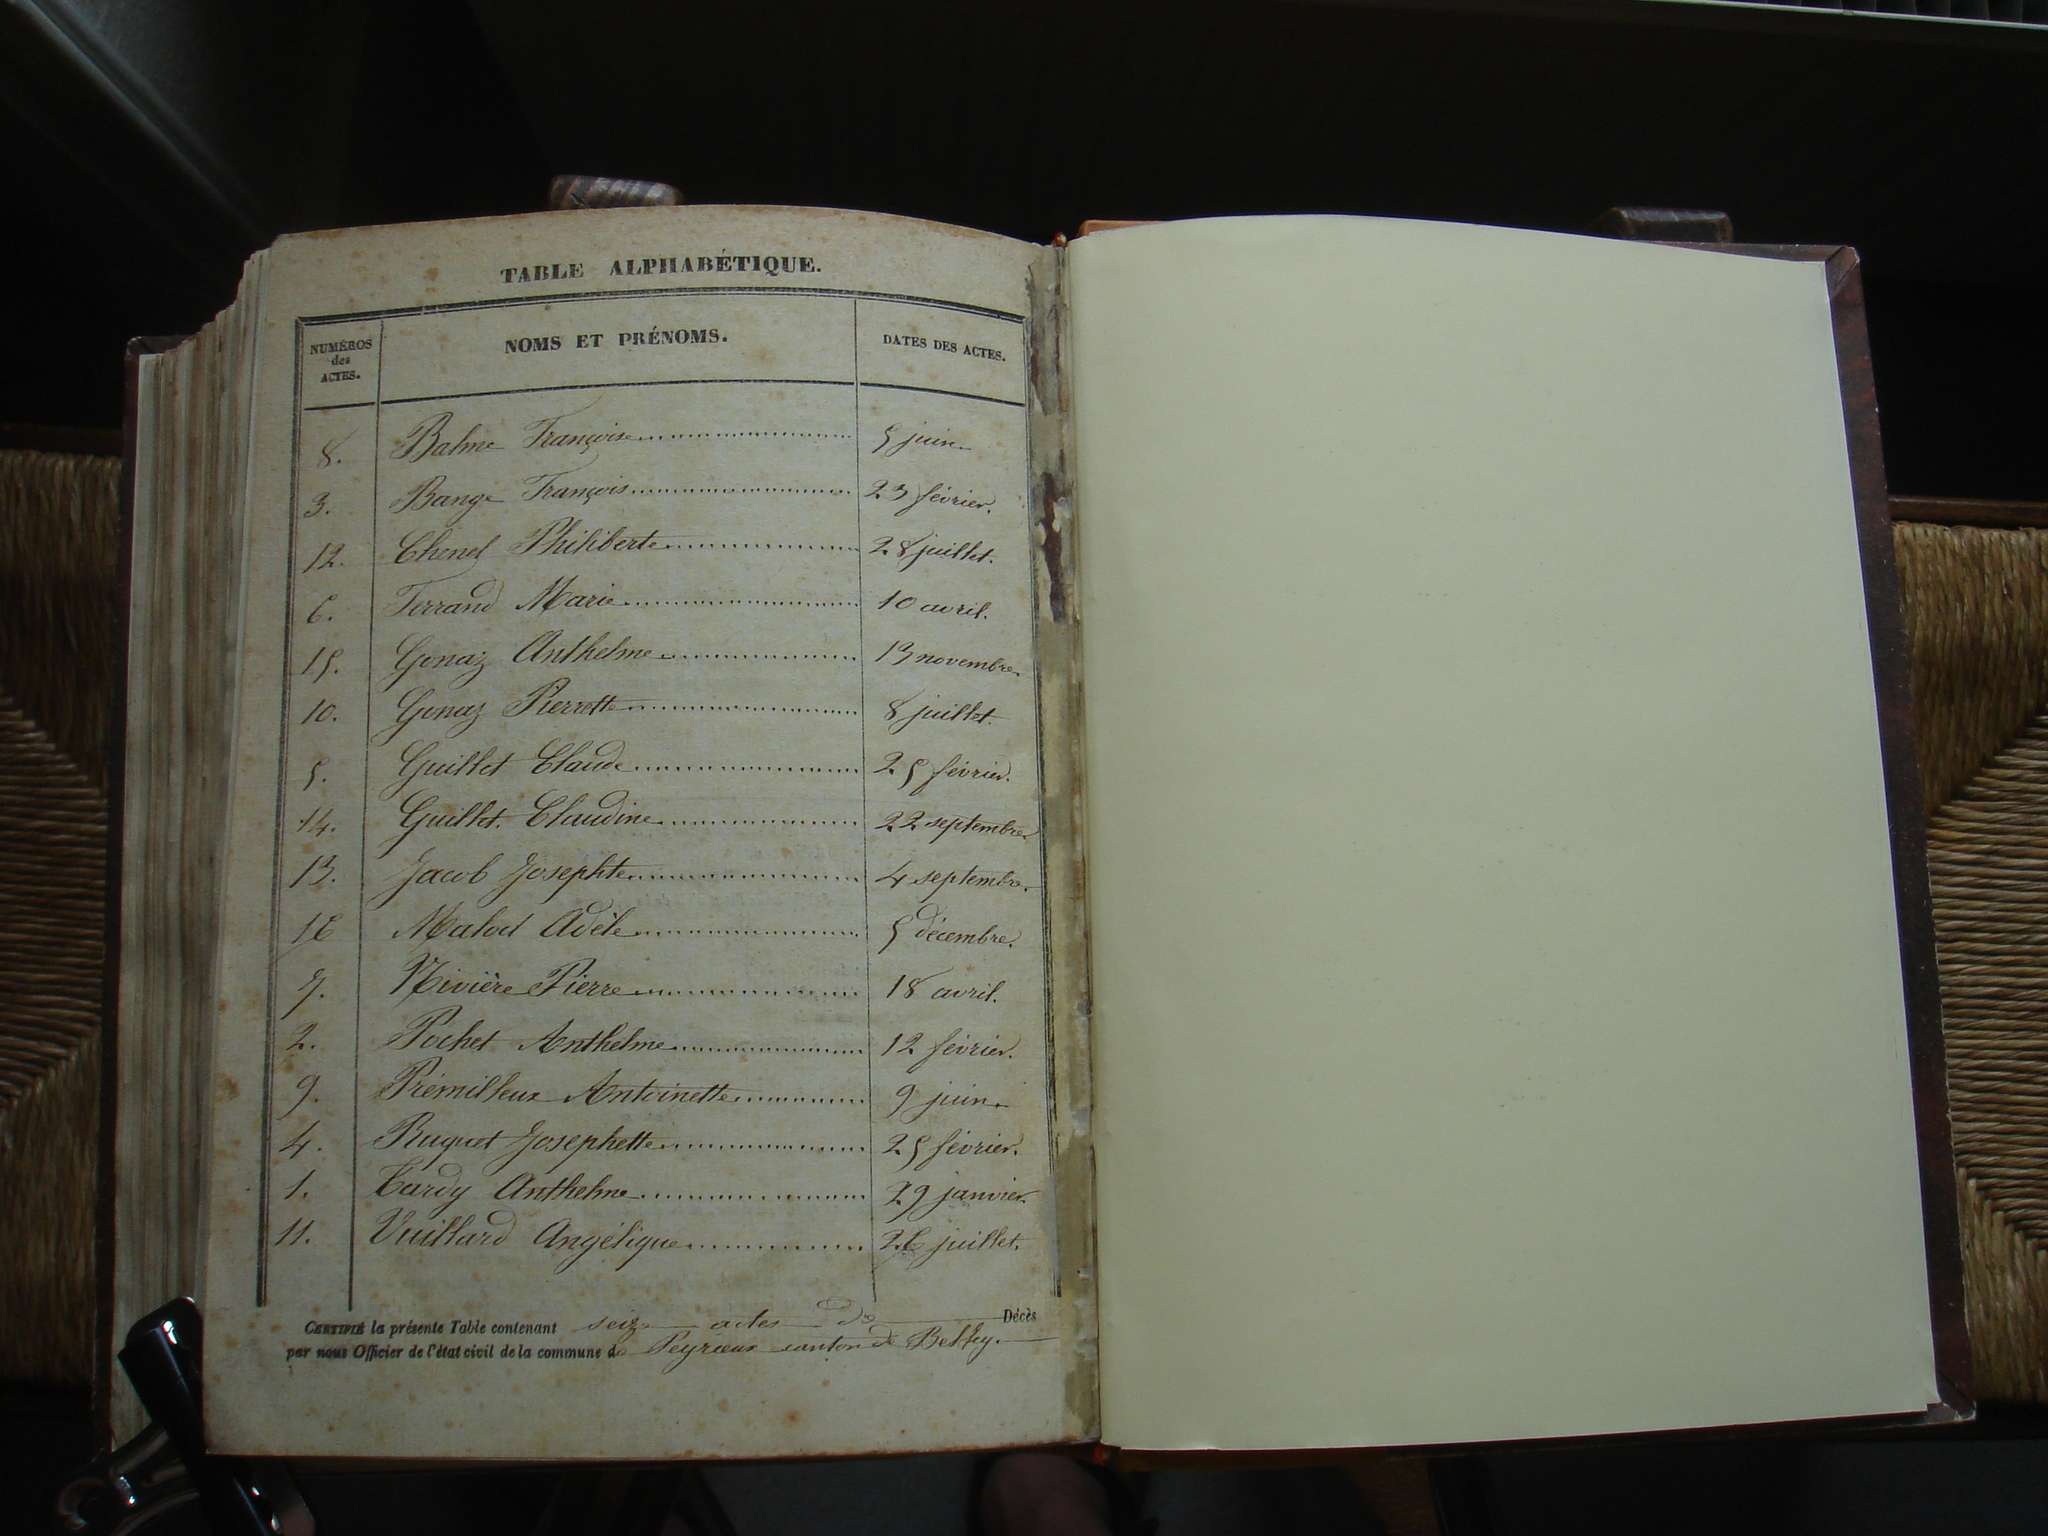 TABLE ALPHABÉTIQUE.
NUMÉROS des ACTES. NOMS ET PRÉNOMS. DATES DES ACTES.
8. Balme Françoise 5 juin
3. Bange François 23 février.
12. Chenel Philiberte 28 juillet.
6. Ferrand Marie 10 avril.
15. Gonaz Anthelme 13 novembre.
10. Gonaz Pierrette 8 juillet.
5. Guillet Claude 25 février.
14. Guillet Claudine 22 septembre
13. Jacob Josephte 4 septembre.
16 Malod Adèle 5 décembre.
7. Nivière Pierre 18 avril.
2. Pochet Anthelme 12 février.
9. Prémilleux Antoinette 9 juin.
4. Ruquet Josephette 25 février.
1. Tardy Anthelme 29 janvier.
11. Vuillard Angélique 26 juillet.
CERTIFIÉ la présente Table contenant seize actes de Décès
par nous Officier de l'état civil de la commune de Peyrieux canton de Belley.